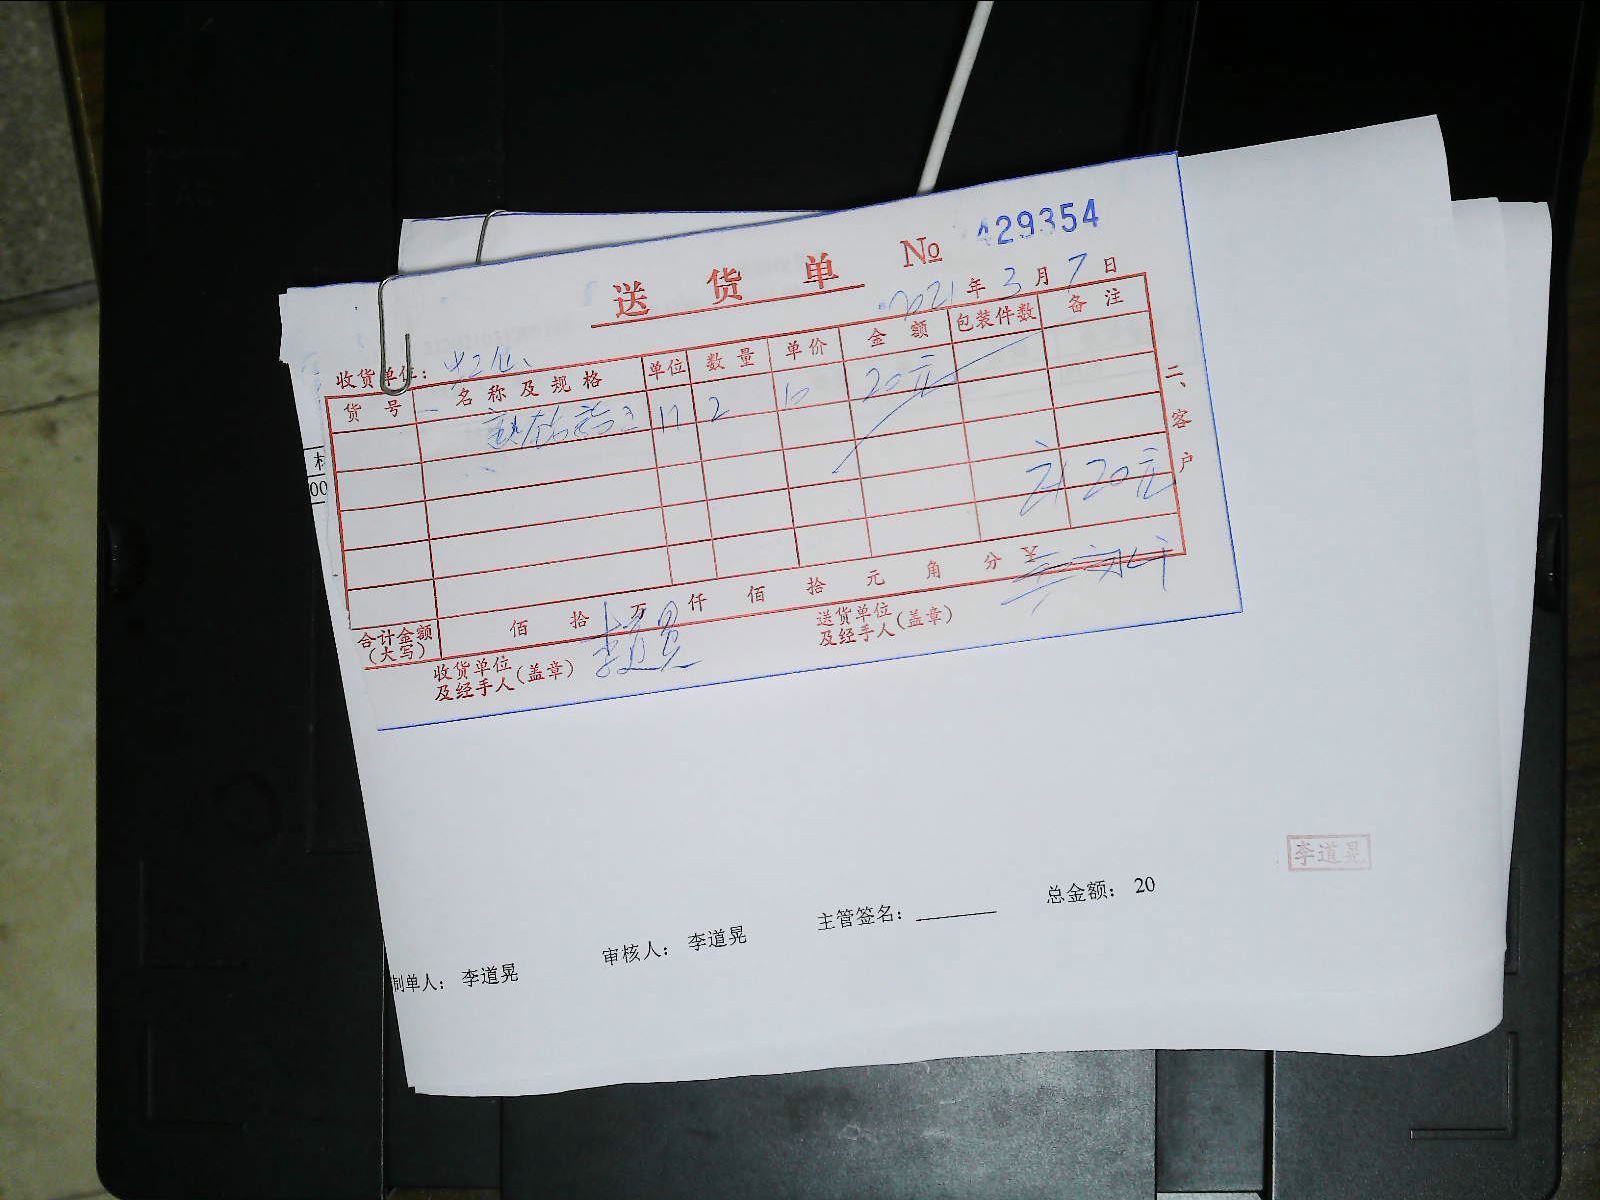 送货单 No 429354
2021年3月7日
收货单位：
货号 名称及规格 单位 数量 单价 金额 包装件数 备注
2 10 20元
计20元
二、客户
合计金额（大写） 佰拾万仟佰拾元角分
收货单位及经手人（盖章） 李道晃
送货单位及经手人（盖章）
00
李道晃
制单人： 李道晃 审核人： 李道晃 主管签名： 总金额： 20